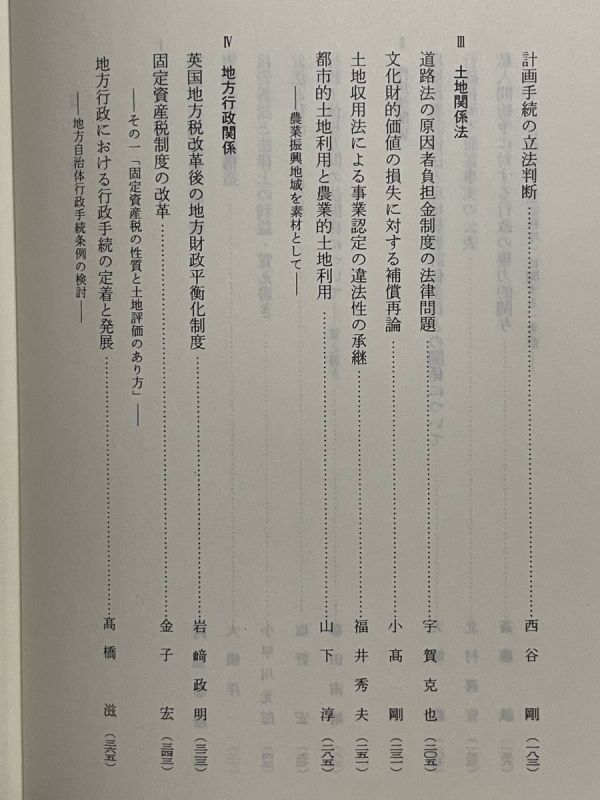 計画手続の立法判断……………………西谷 剛(一八三)
Ⅲ 土地関係法
道路法の原因者負担金制度の法律問題……………………宇賀克也(二〇五)
文化財的価値の損失に対する補償再論……………………小髙 剛(二三一)
土地収用法による事業認定の違法性の承継……………………福井秀夫(二五一)
都市的土地利用と農業的土地利用……………………山下 淳(二八五)
――農業振興地域を素材として――
Ⅳ 地方行政関係
英国地方税改革後の地方財政平衡化制度……………………岩﨑政明(三二三)
固定資産税制度の改革……………………金子 宏(三四三)
――その一「固定資産税の性質と土地評価のあり方」――
地方行政における行政手続の定着と発展……………………髙橋 滋(三六五)
――地方自治体行政手続条例の検討――